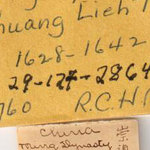 huang Lieh
1628-1642
29-127-2864
760 R.C.H
China
Ming Dynasty
崇